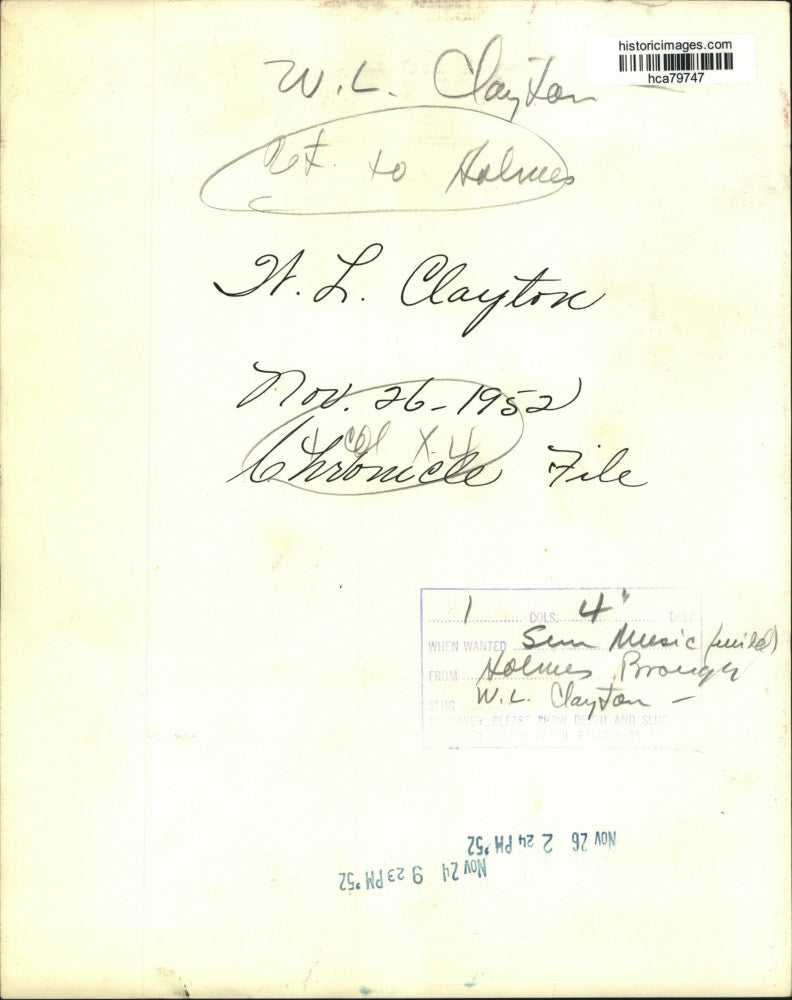 historicimages.com
hca79747
W. L. Clayton
to Holmes
W. L. Clayton
Nov. 26-1952
1 col X 4
Chronicle File
1 COLS. 4" DEEP
WHEN WANTED Sun Music
FROM Holmes
SLUG W. L. Clayton -
ENGRAVER: PLEASE SHOW DEPTH AND SLUG
NOV 26 2 24 PM '52
NOV 24 9 23 PM '52